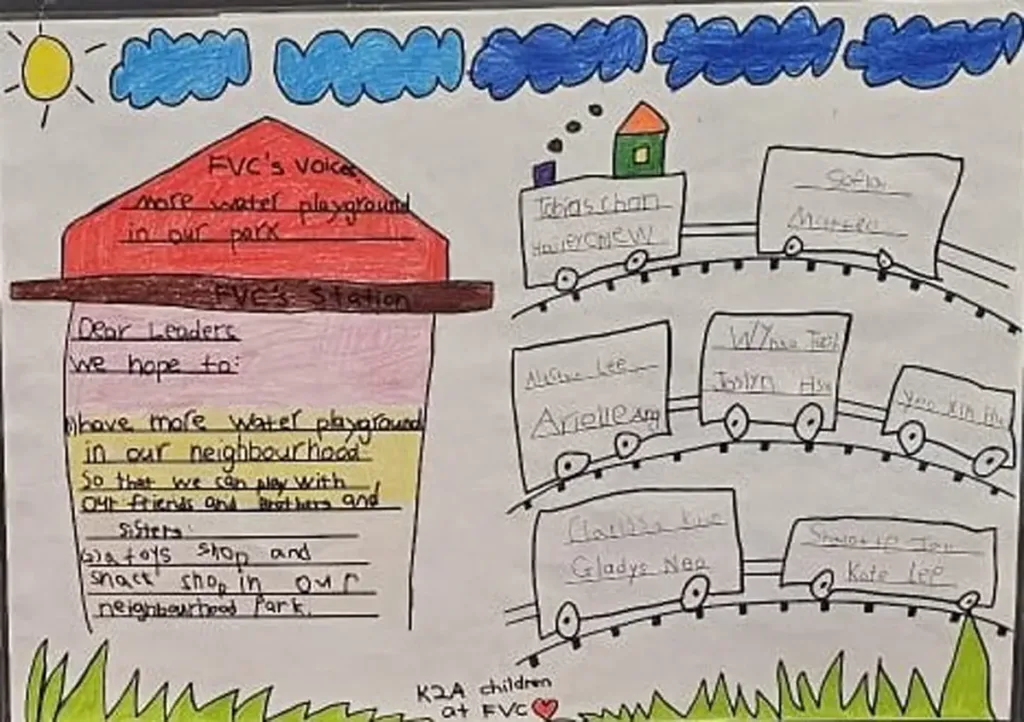 FVC's Voice
more water playground
in our park
FVC's Station
Dear Leaders
We hope to:
1) have more water playground
in our neighbourhood
So that we can play with
our friends and brothers and
sisters.
(2) a toys shop and
snack shop in our
neighbourhood Park.
Tobias chan
Sofia
Lee
Arielle Ang
Joslyn Hsu
Yuu Xin
Clarissa
Gladys Neo
Kate Lee
K2A children
at FVC